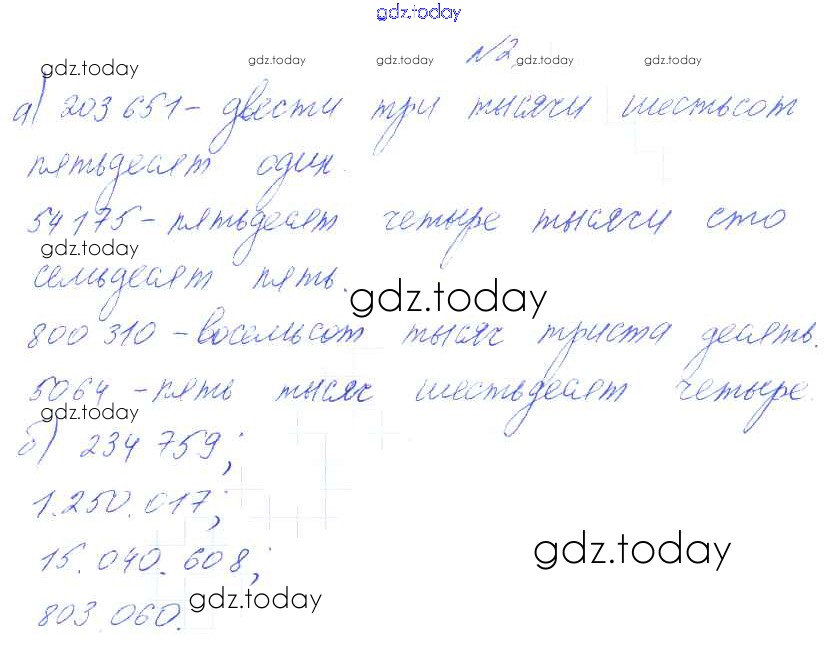 gdz.today
№2.
gdz.today gdz.today gdz.today gdz.today
а) 203 651 - двести три тысячи шестьсот
пятьдесят один.
54 175 - пятьдесят четыре тысячи сто
gdz.today
семьдесят пять.
gdz.today
800 310 - восемьсот тысяч триста десять.
5064 - пять тысяч шестьдесят четыре.
gdz.today
б) 234 759;
1.250.017;
gdz.today
15.040.608;
gdz.today
803.060.